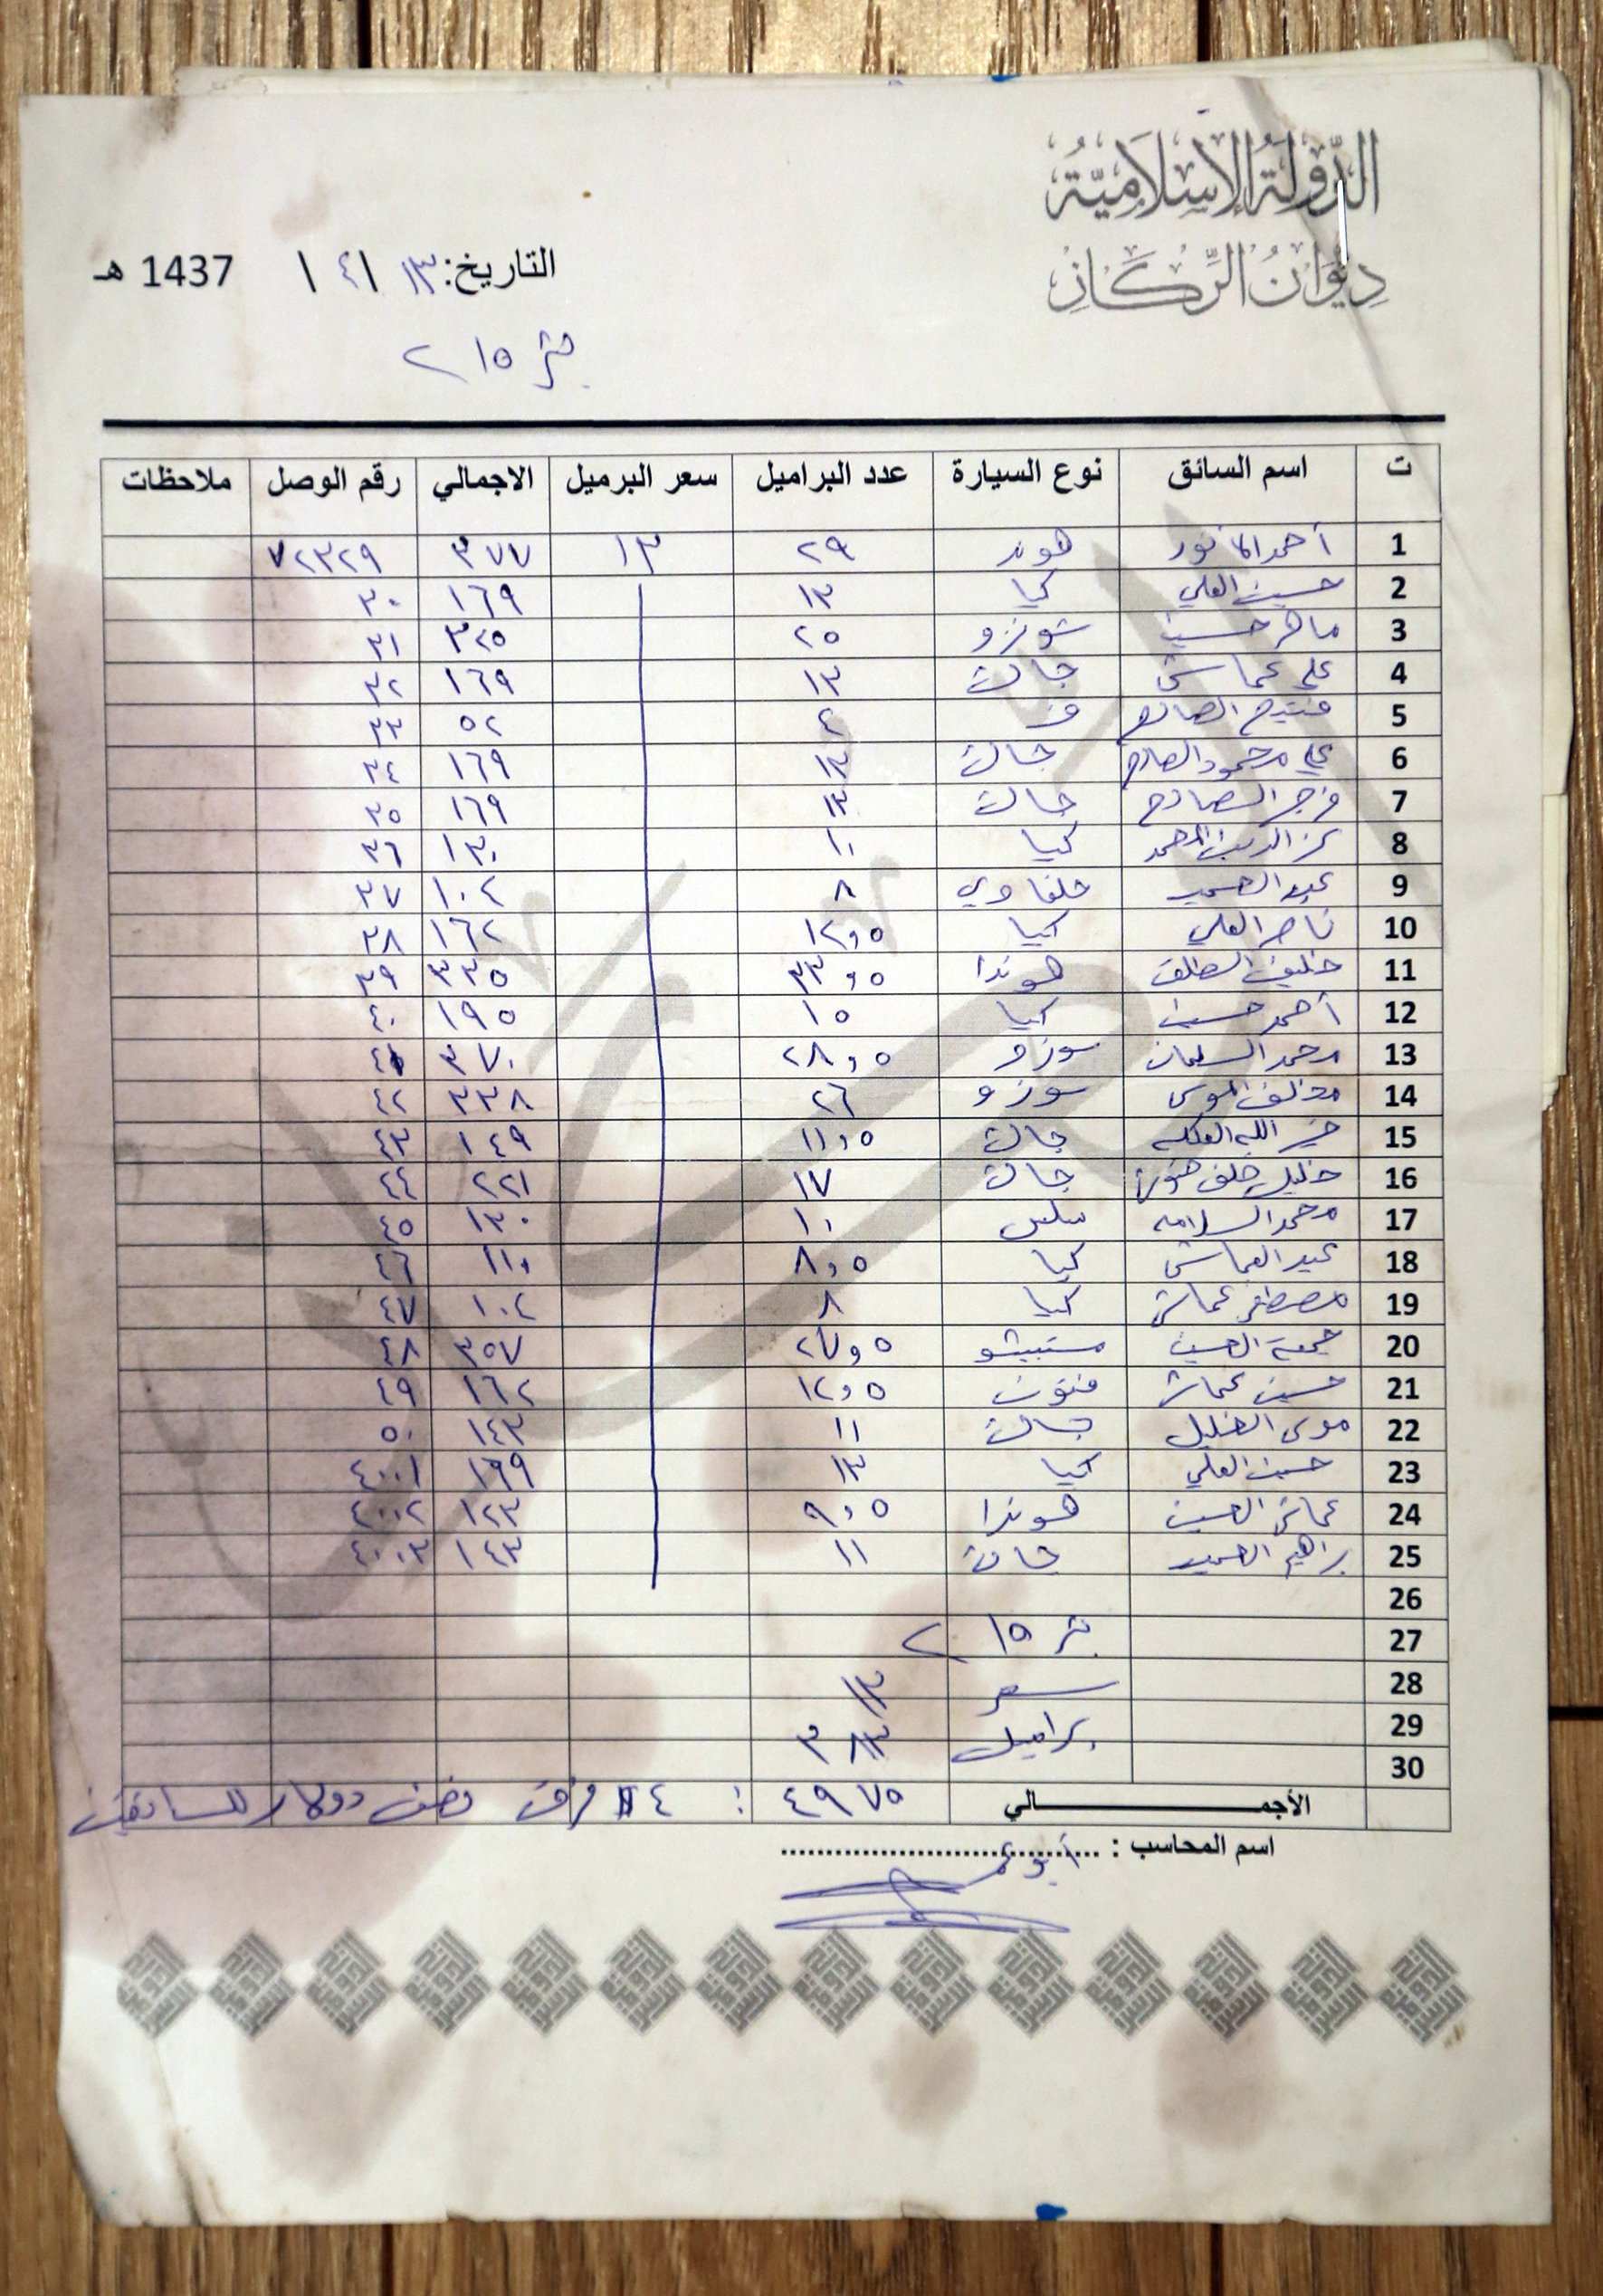 الدولة الإسلامية
ديوان الركاز
التاريخ: ١٣ / ٤ / 1437 هـ
بئر ١٥ ٢
ت اسم السائق نوع السيارة عدد البراميل سعر البرميل الاجمالي رقم الوصل ملاحظات
1 أحمد هوند ٢٩ ١٣ ٣٧٧ ٧٢٣٢٩
2 حسين العلي كيا ١٣ ١٦٩ ٣٠
3 ماهر حسين ٢٥ ٣٢٥ ٣١
4 علي عماش جاك ١٣ ١٦٩ ٣٢
5 الصالح ٤ ٥٢ ٣٣
6 علي محمود الصالح جاك ١٣ ١٦٩ ٣٤
7 فرج الصالح جاك ١٣ ١٦٩ ٣٥
8 كيا ١٠ ١٣٠ ٣٦
9 عبد حلفاوي ٨ ١٠٤ ٣٧
10 ناصر العلي كيا ١٢,٥ ١٦٢ ٣٨
11 خليف الخلف هوندا ٥, ٣٣٥ ٣٩
12 أحمد حسين كيا ١٥ ١٩٥ ٤٠
13 محمد السلمان سوزو ٢٨,٥ ٣٧٠ ٤١
14 مخلف الموسى سوزو ٢٦ ٣٣٨ ٤٢
15 خير الله جاك ١١,٥ ١٤٩ ٤٣
16 خليل خلف جاك ١٧ ٢٢١ ٤٤
17 محمد السلامه ١٠ ١٣٠ ٤٥
18 عيد العماش كيا ٨,٥ ١١٠ ٤٦
19 مصطفى عماش كيا ٨ ١٠٤ ٤٧
20 جمعة الحسين ٢٧,٥ ٣٥٧ ٤٨
21 حسين عماش فوتون ١٢,٥ ١٦٢ ٤٩
22 موسى الخليل جاك ١١ ١٤٣ ٥٠
23 حسين العلي كيا ١٣ ١٦٩ ٤٠٠١
24 عماش الحسين هوندا ٩,٥ ١٢٣ ٤٠٠٢
25 براهيم جاك ١١ ١٤٣ ٤٠٠٣
26
27 بئر ١٥ ٢
28 سعر ١٣
29 براميل ٣٨٣
30
الأجمـــــــالي ٤٩٧٥ : ٤ فرق نصف دولار للسائقين
اسم المحاسب : أبو